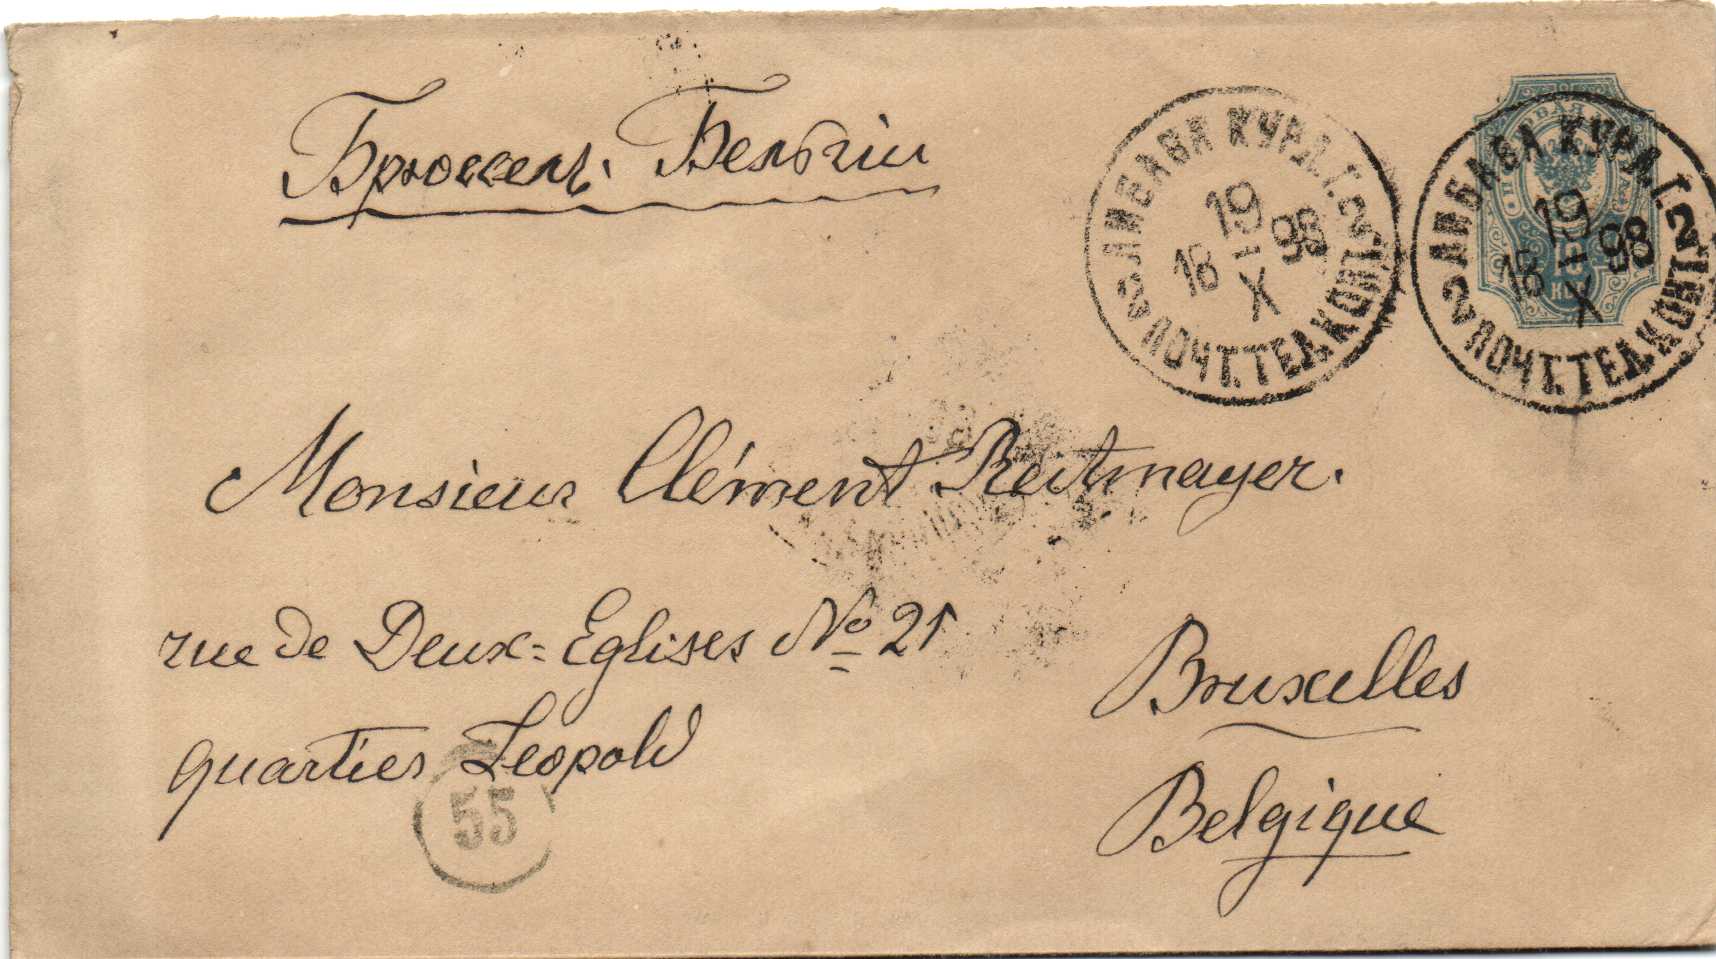 Брюссель. Бельгіи
2 ЛИБАВА КУРЛ.Г. 2
19
18 X 98
ПОЧТ.ТЕЛ.КОНТ.
2 ЛИБАВА КУРЛ.Г. 2
19
18 X 98
ПОЧТ.ТЕЛ.КОНТ.
10
КОП
Monsieur Clément Reitmayer.
rue de Deux=Eglises No 21
quartier Leopold
55
Bruxelles
Belgique